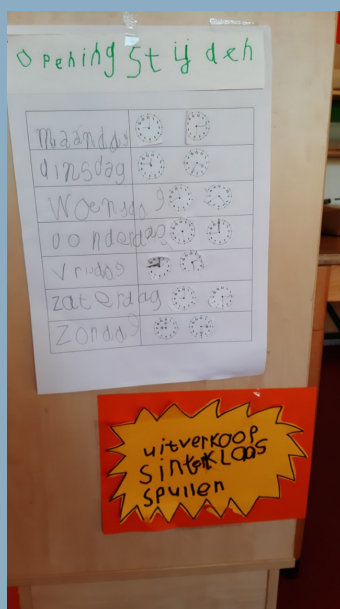 Openingstijden
maandag
dinsdag
Woensdag
donderdag
vrijdag
zaterdag
Zondag
uitverkoop
sinterklaas
spullen